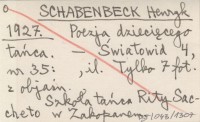 SCHABENBECK Henryk
1927. Poezja dziecięcego
tańca. — Światowid 4,
nr 35: , il. Tylko 7 fot.
z objaśn.
Szkoła tańca Rity Sac-
cheto w Zakopanem